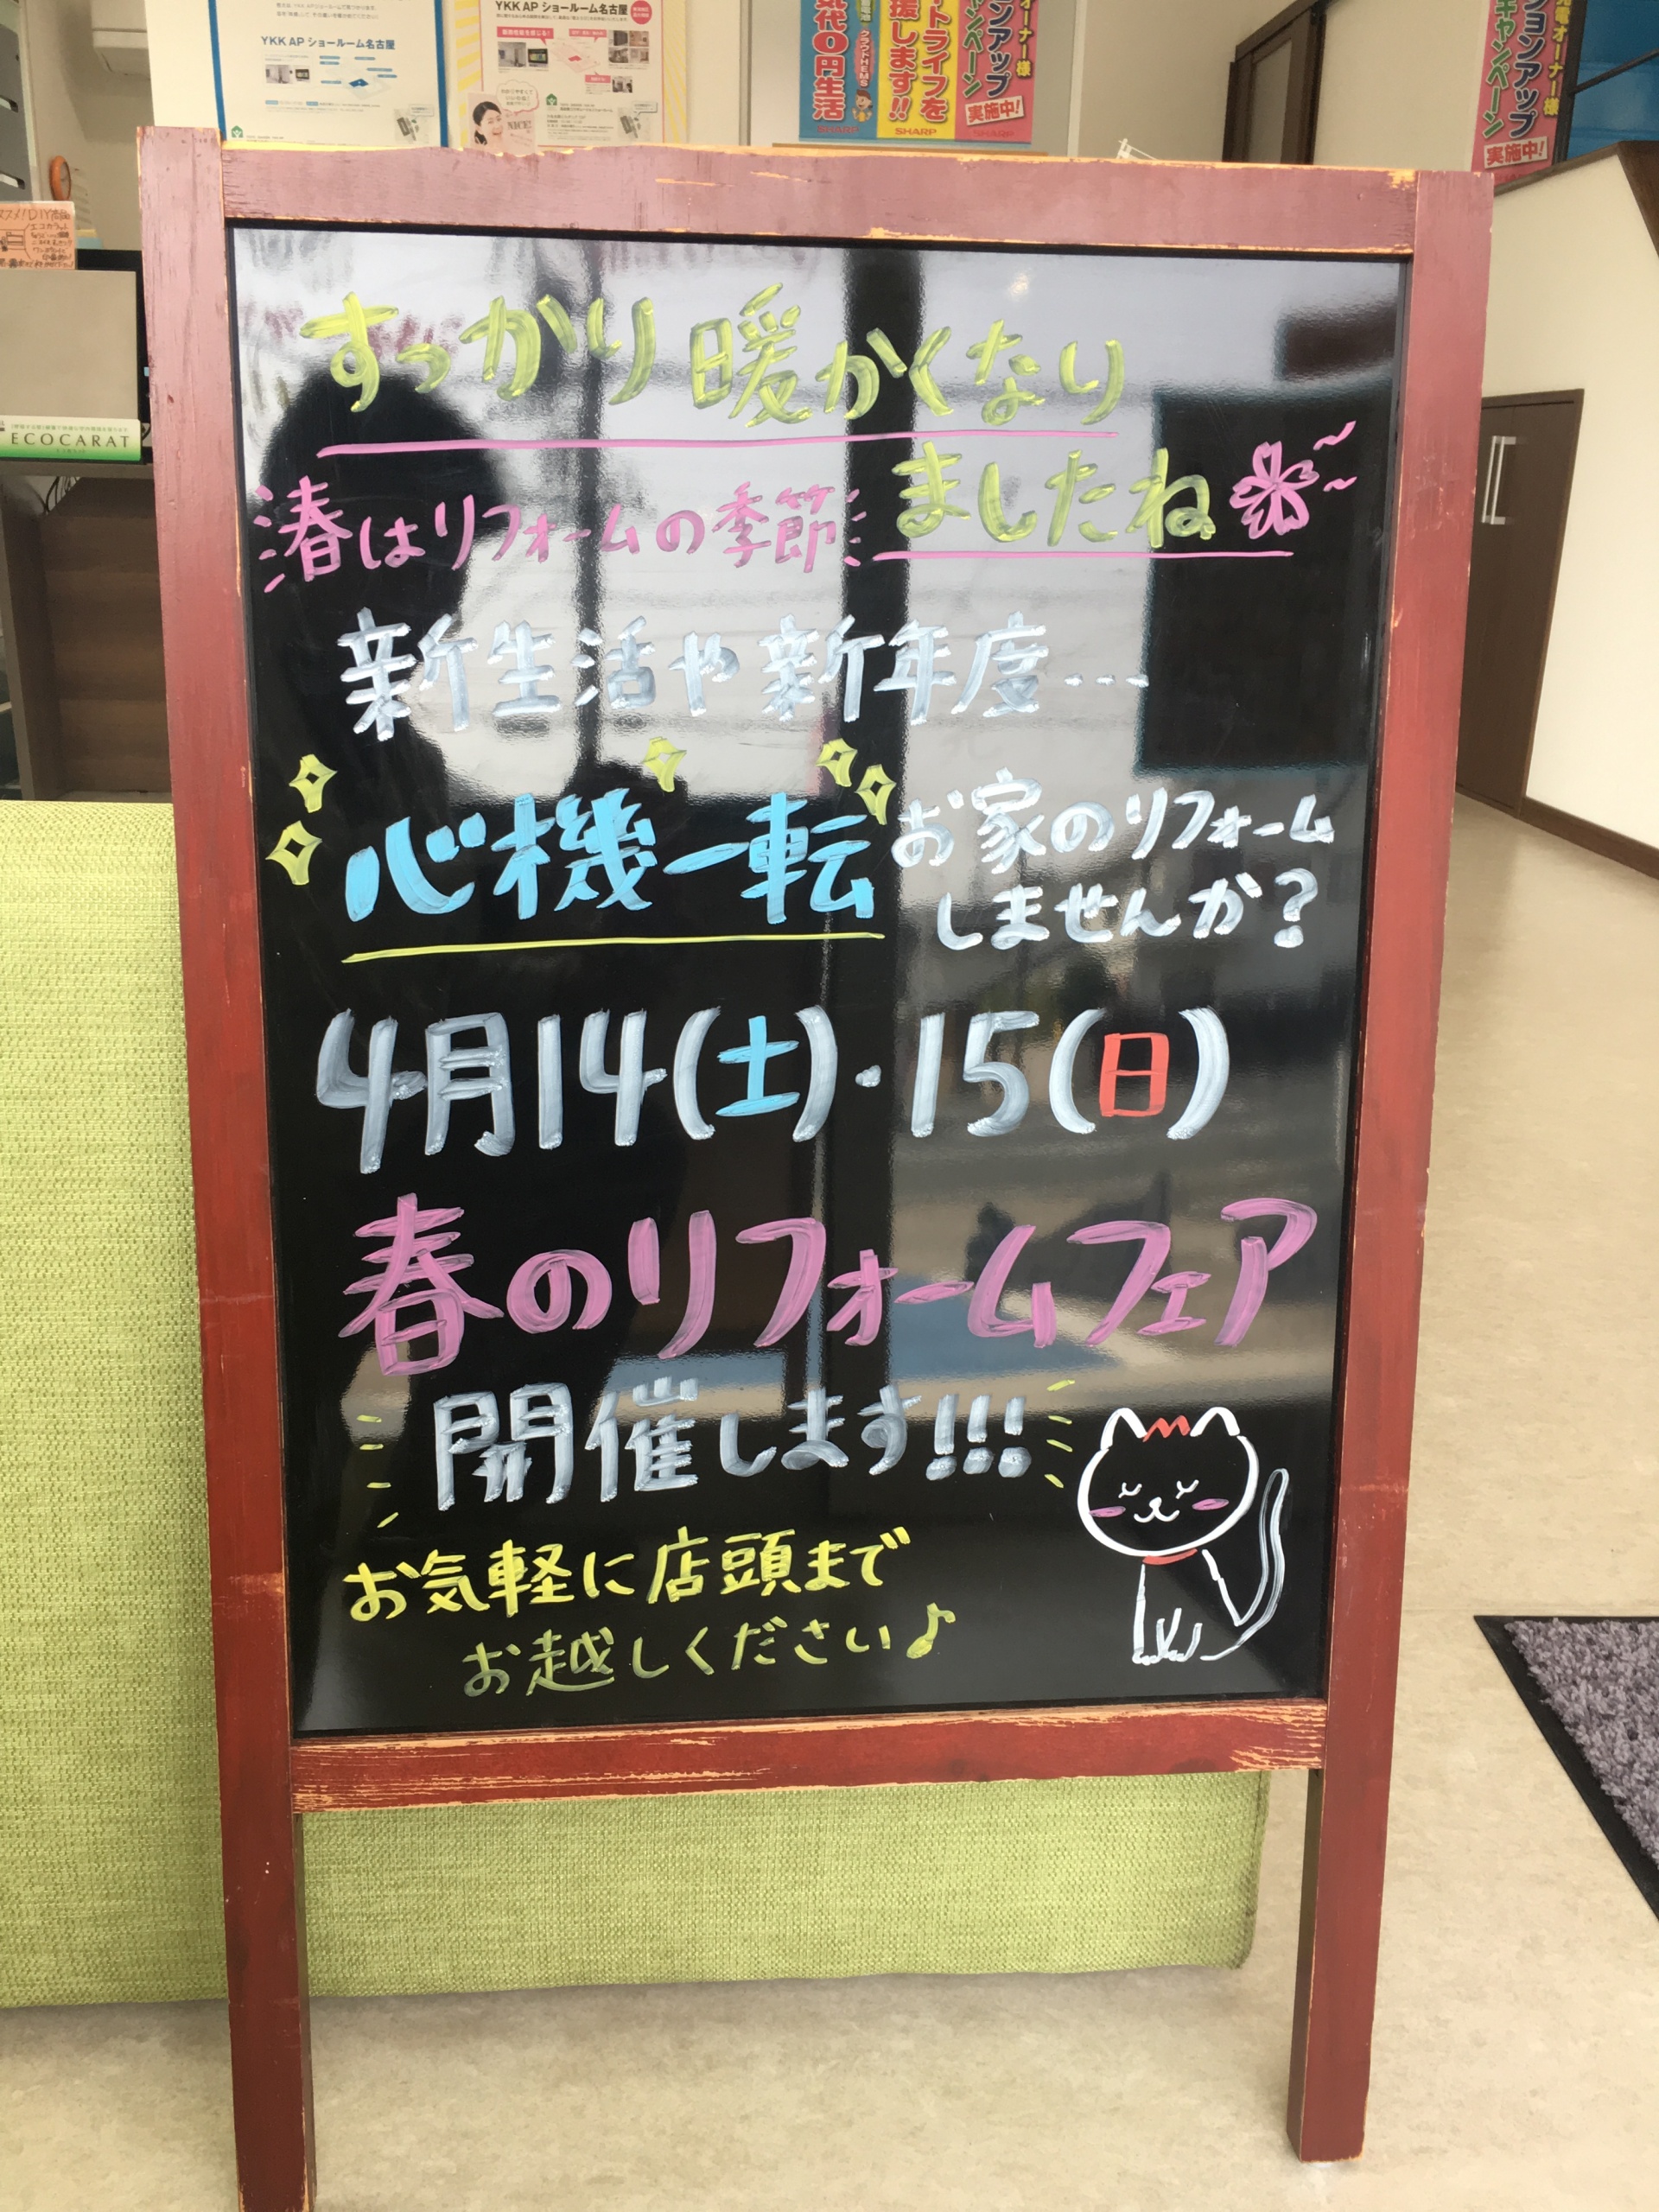 YKK AP ショールーム名古屋
YKK AP ショールーム名古屋
NICE!
気代0円生活
クラウドHEMS
SHARP
援します!!
ートライフを
SHARP
オーナー様
ンアップ
ャンペーン
実施中!
SHARP
発電オーナー様
ションアップ
キャンペーン
実施中!
エコカラット
ECOCARAT
すっかり暖かくなり
ましたね
春はリフォームの季節
新生活や新年度…
心機一転
お家のリフォーム
しませんか?
4月14(土)・15(日)
春のリフォームフェア
開催します!!!
お気軽に店頭まで
お越しください♪